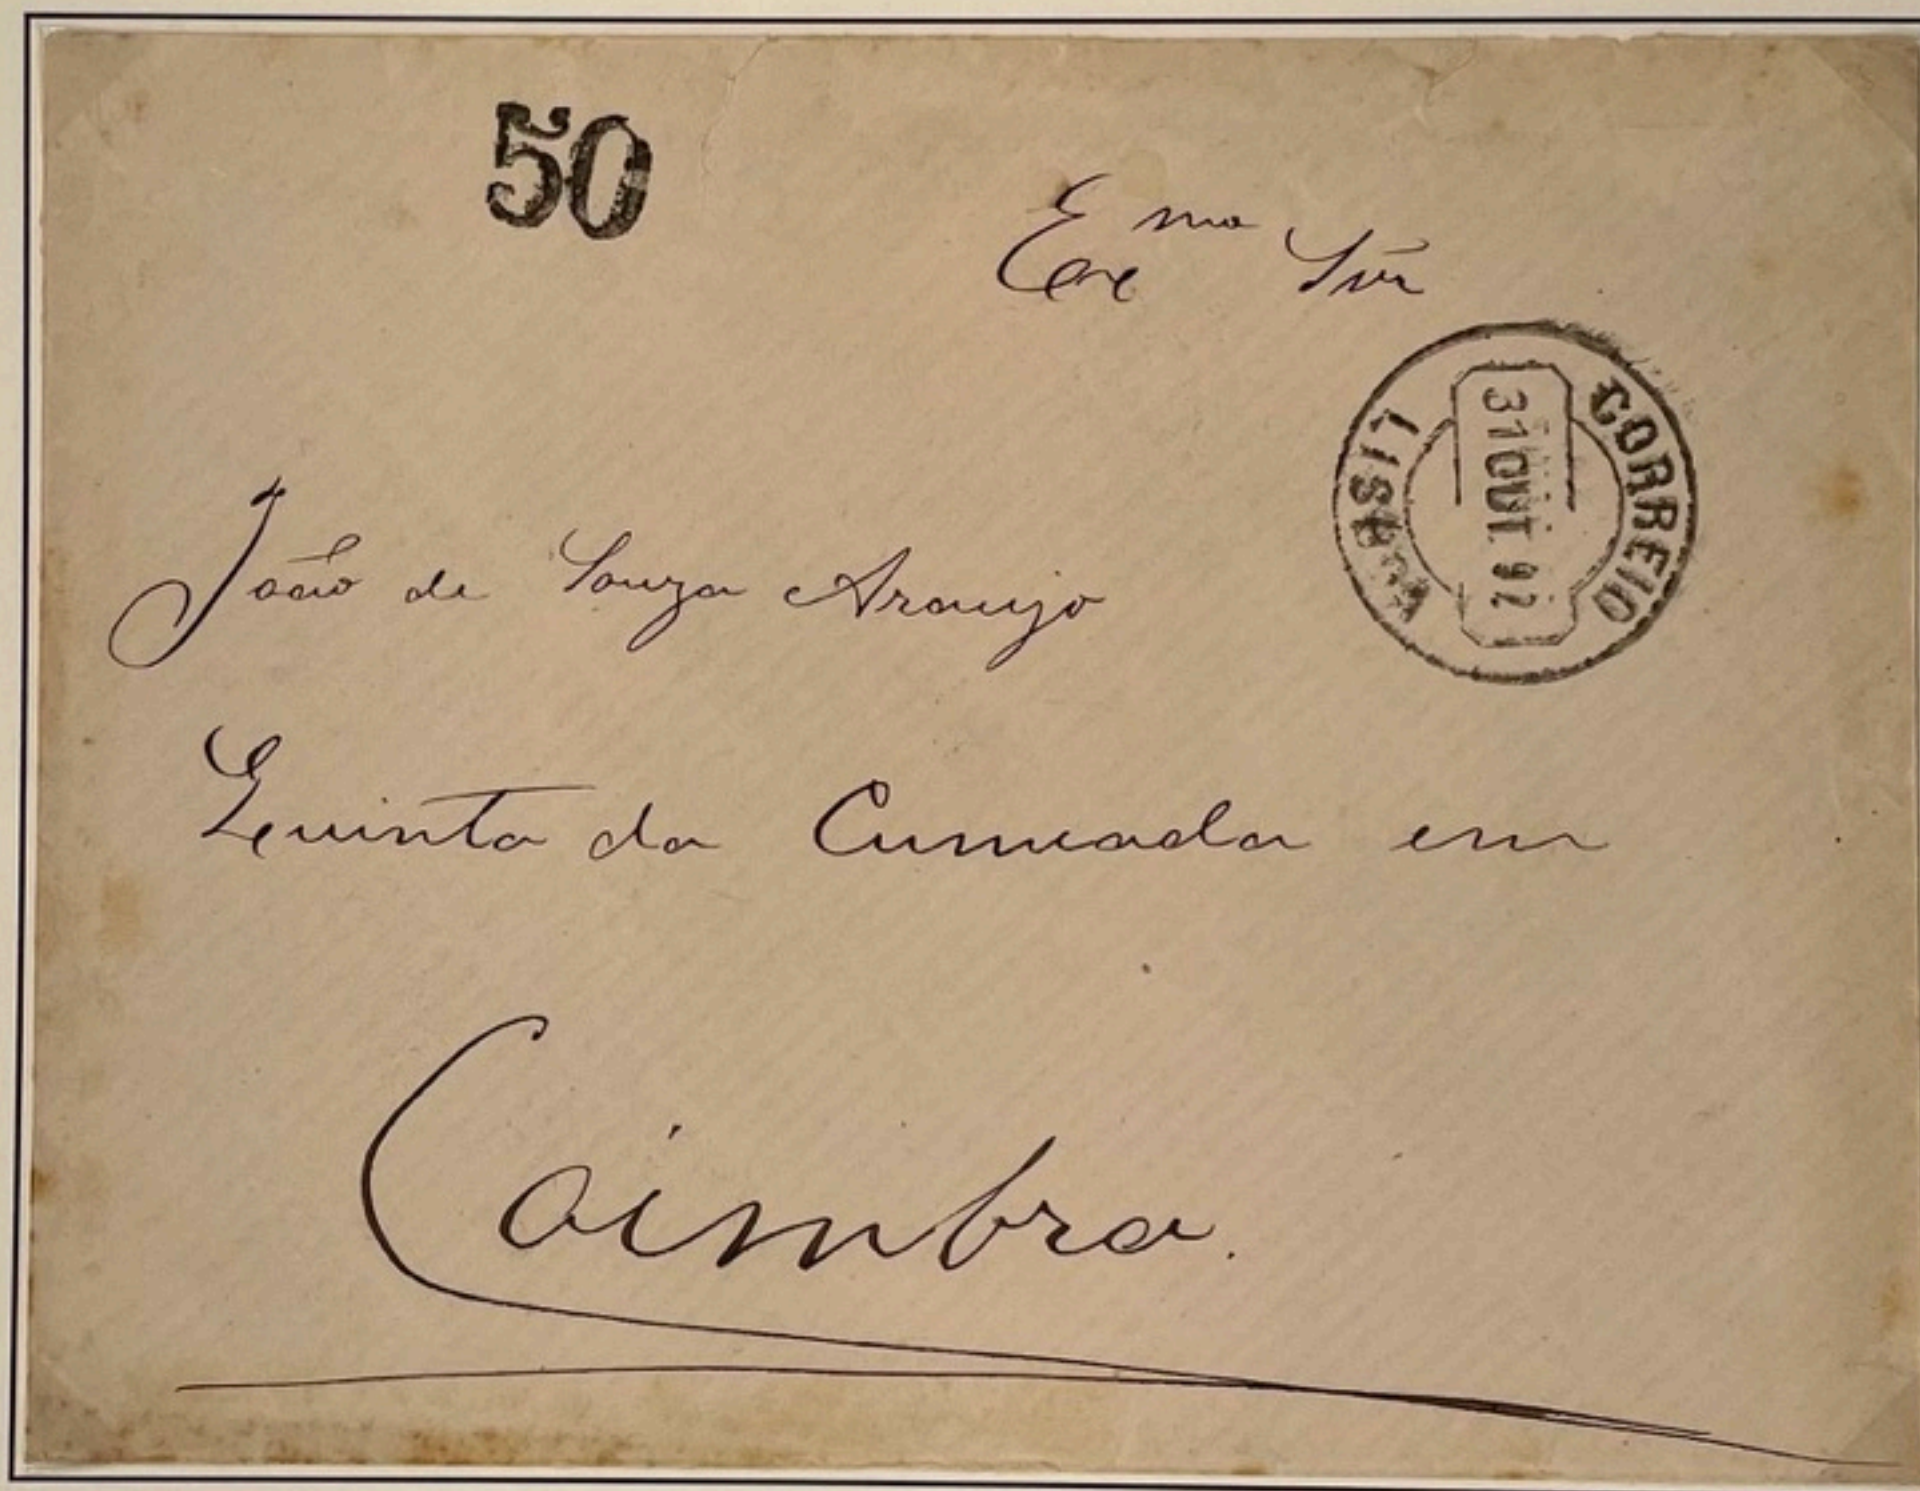 50
Exmo Snr
CORREIO
31 OUT. 92
LISBOA
João de Souza Araujo
Quinta da Cumeada em
Coimbra.